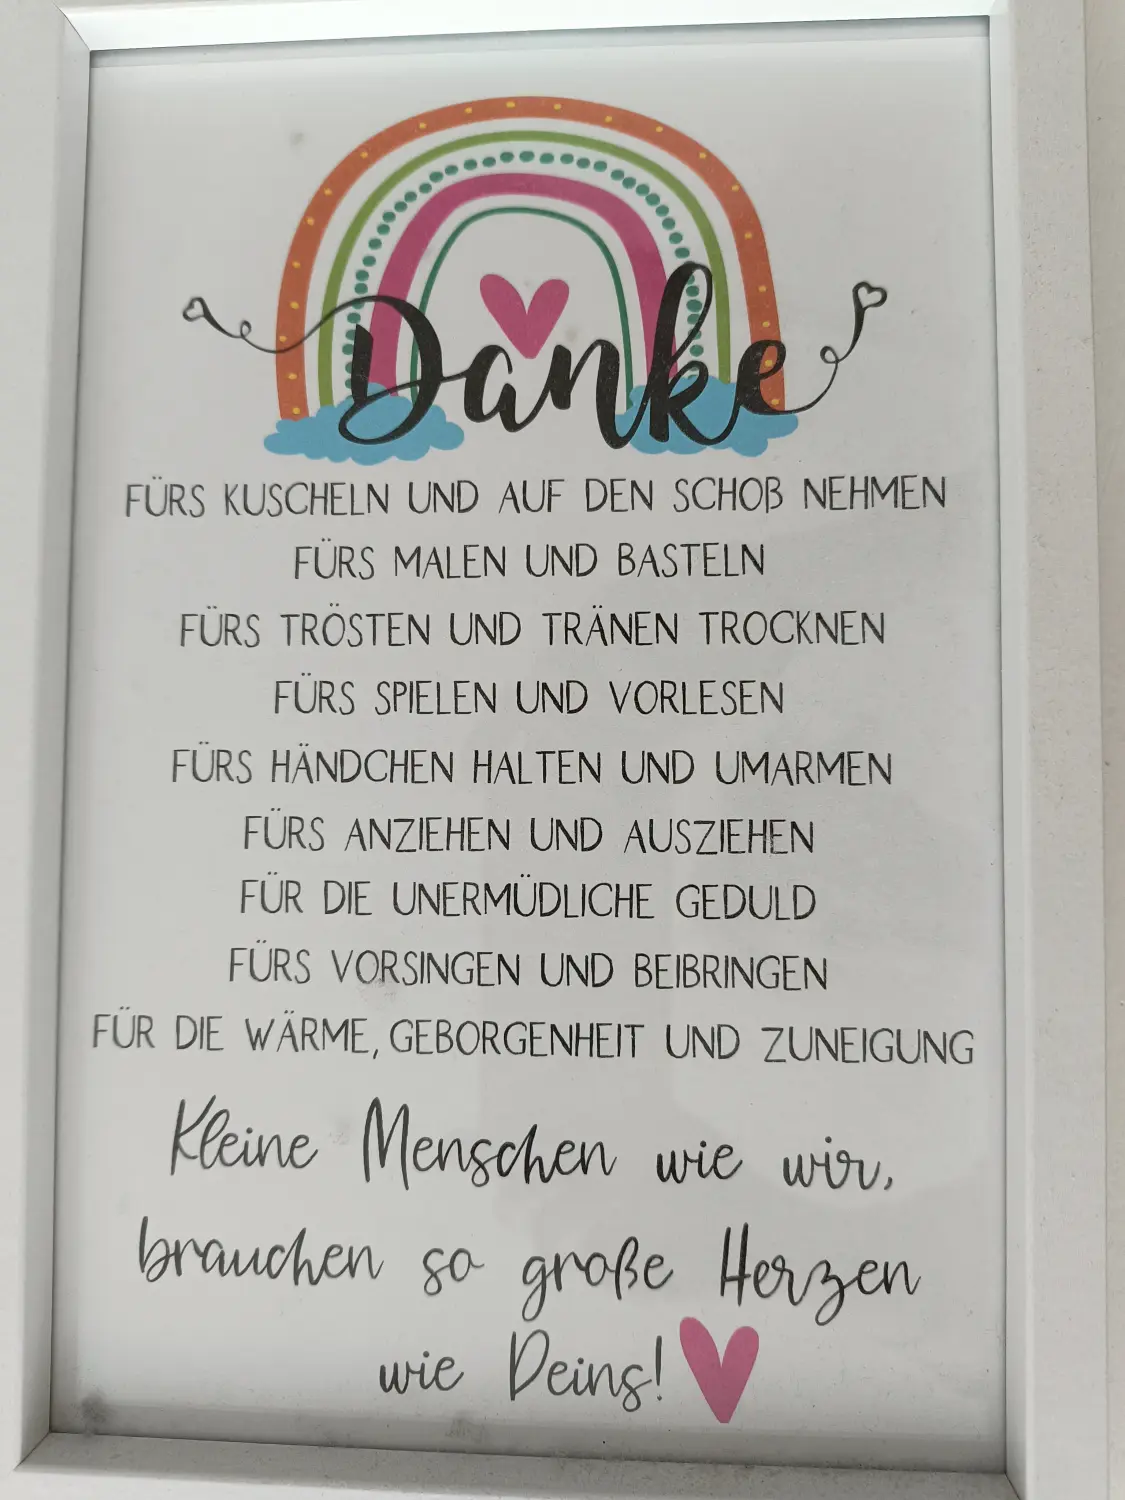 Danke
FÜRS KUSCHELN UND AUF DEN SCHOß NEHMEN
FÜRS MALEN UND BASTELN
FÜRS TRÖSTEN UND TRÄNEN TROCKNEN
FÜRS SPIELEN UND VORLESEN
FÜRS HÄNDCHEN HALTEN UND UMARMEN
FÜRS ANZIEHEN UND AUSZIEHEN
FÜR DIE UNERMÜDLICHE GEDULD
FÜRS VORSINGEN UND BEIBRINGEN
FÜR DIE WÄRME, GEBORGENHEIT UND ZUNEIGUNG
Kleine Menschen wie wir,
brauchen so große Herzen
wie Deins!